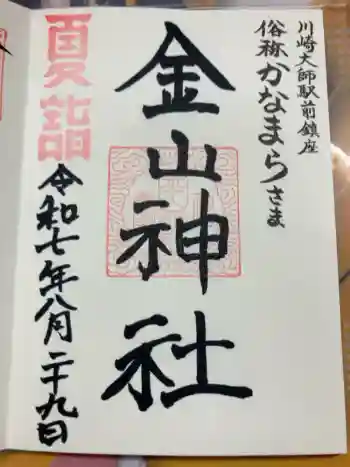 川崎大師駅前鎮座
俗称かなまらさま
金山神社
夏詣
令和七年八月二十九日